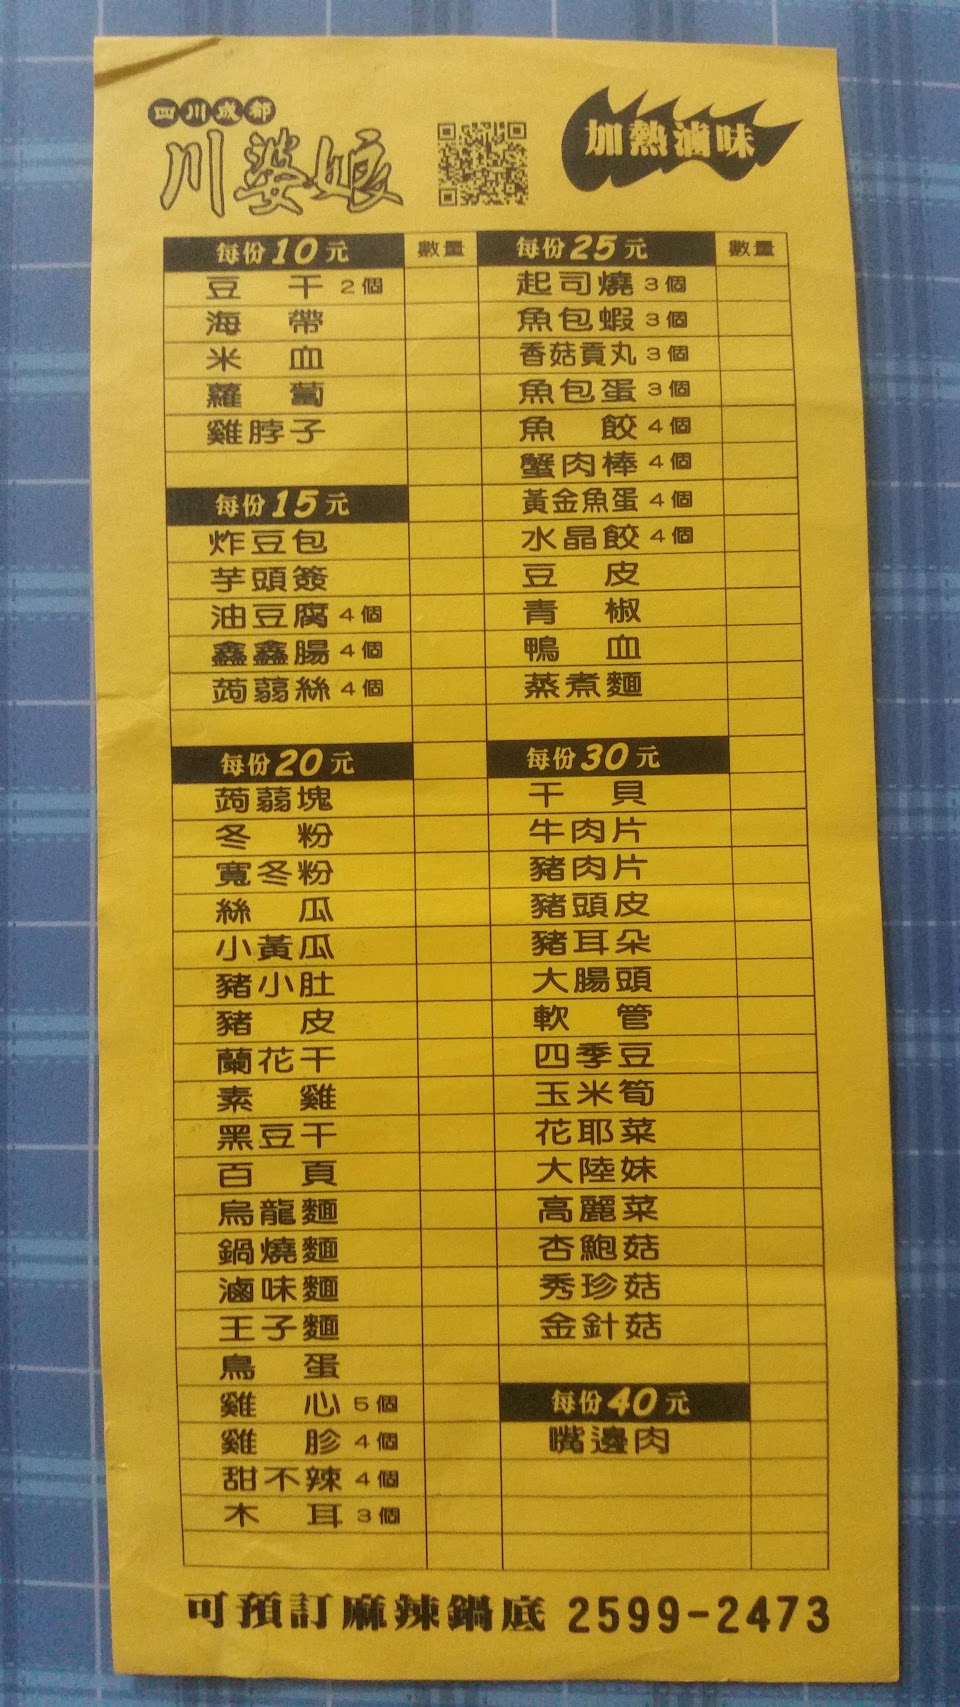 四川成都
川婆娘
加熱滷味
每份10元 數量
豆干 2個
海帶
米血
蘿蔔
雞脖子
每份15元
炸豆包
芋頭簽
油豆腐 4個
鑫鑫腸 4個
蒟蒻絲 4個
每份20元
蒟蒻塊
冬粉
寬冬粉
絲瓜
小黃瓜
豬小肚
豬皮
蘭花干
素雞
黑豆干
百頁
烏龍麵
鍋燒麵
滷味麵
王子麵
鳥蛋
雞心 5個
雞胗 4個
甜不辣 4個
木耳 3個
每份25元 數量
起司燒 3個
魚包蝦 3個
香菇貢丸 3個
魚包蛋 3個
魚餃 4個
蟹肉棒 4個
黃金魚蛋 4個
水晶餃 4個
豆皮
青椒
鴨血
蒸煮麵
每份30元
干貝
牛肉片
豬肉片
豬頭皮
豬耳朵
大腸頭
軟管
四季豆
玉米筍
花耶菜
大陸妹
高麗菜
杏鮑菇
秀珍菇
金針菇
每份40元
嘴邊肉
可預訂麻辣鍋底 2599-2473